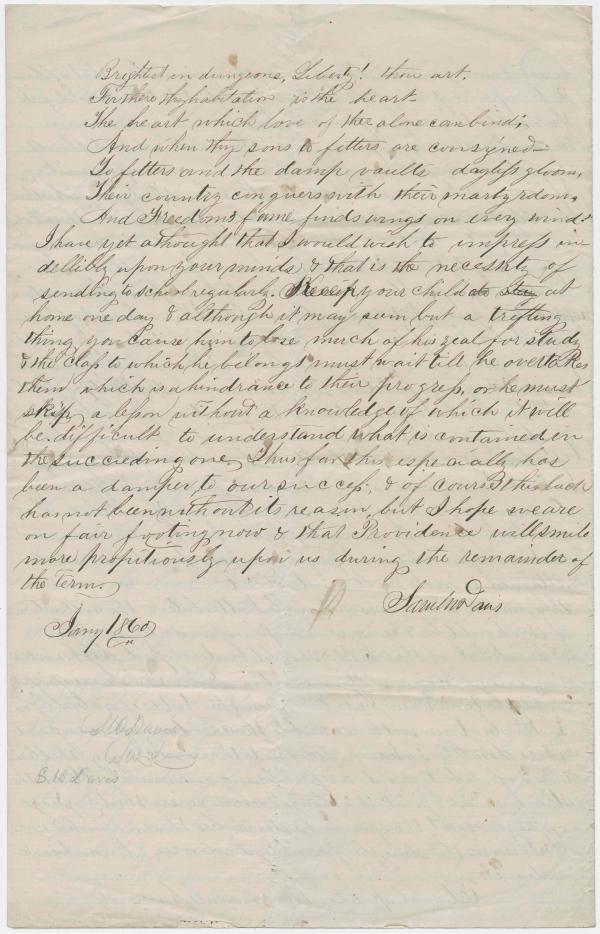 Brightest in dungeons, Liberty! thou art.
For there thy habitation is the heart—
The heart which love of thee alone can bind;
And when thy sons to fetters are consigned—
To fetters and the damp vaults dayless gloom,
Their country conquers with their martyrdom,
And Freedoms fame finds wings on every wind.
I have yet a thought that I would wish to impress in-
dellibly upon your minds & that is the necessity of
sending to school regularly. Keep your child at
home one day & although it may seem but a trifling
thing you cause him to lose much of his zeal for study
& the class to which he belongs must wait till he overtakes
them which is a hindrance to their progress, or he must
skip a lesson without a knowledge of which it will
be difficult to understand what is contained in
the succeeding one. Thus far this especially has
been a damper to our success; & of course this lack
has not been without its reason, but I hope we are
on fair footing now & that Providence will smile
more propitiously upon us during the remainder of
the term.
Saml W Davis
Jany 1860
S W Davis
S. W Davis